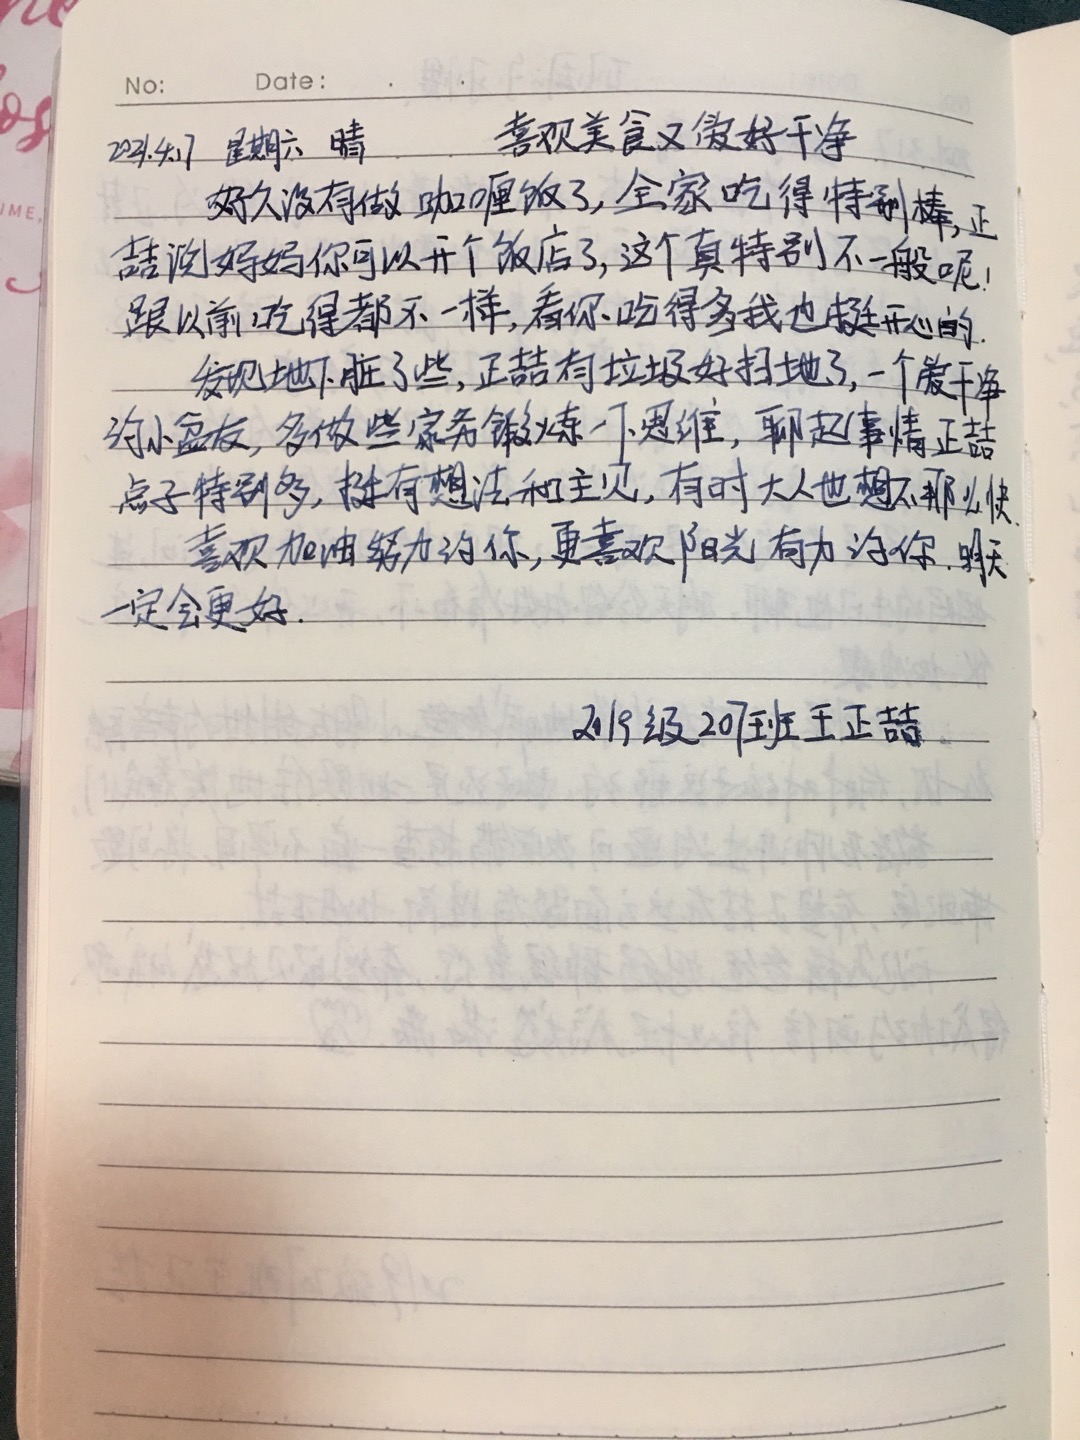 No: Date: . .
2021.4.17 星期六 晴 喜欢美食又做好干净
好久没有做咖喱饭了,全家吃得特别棒,正
喆说妈妈你可以开个饭店了,这个真特别不一般呢!
跟以前吃得都不一样,看你吃得多我也挺开心的.
发现地下脏了些,正喆有垃圾好扫地了,一个爱干净
的小盆友,多做些家务锻炼一下思维,聊起事情正喆
点子特别多,挺有想法和主见,有时大人也想不那么快.
喜欢加油努力的你,更喜欢阳光有力的你.明天
一定会更好.
2019级207班王正喆